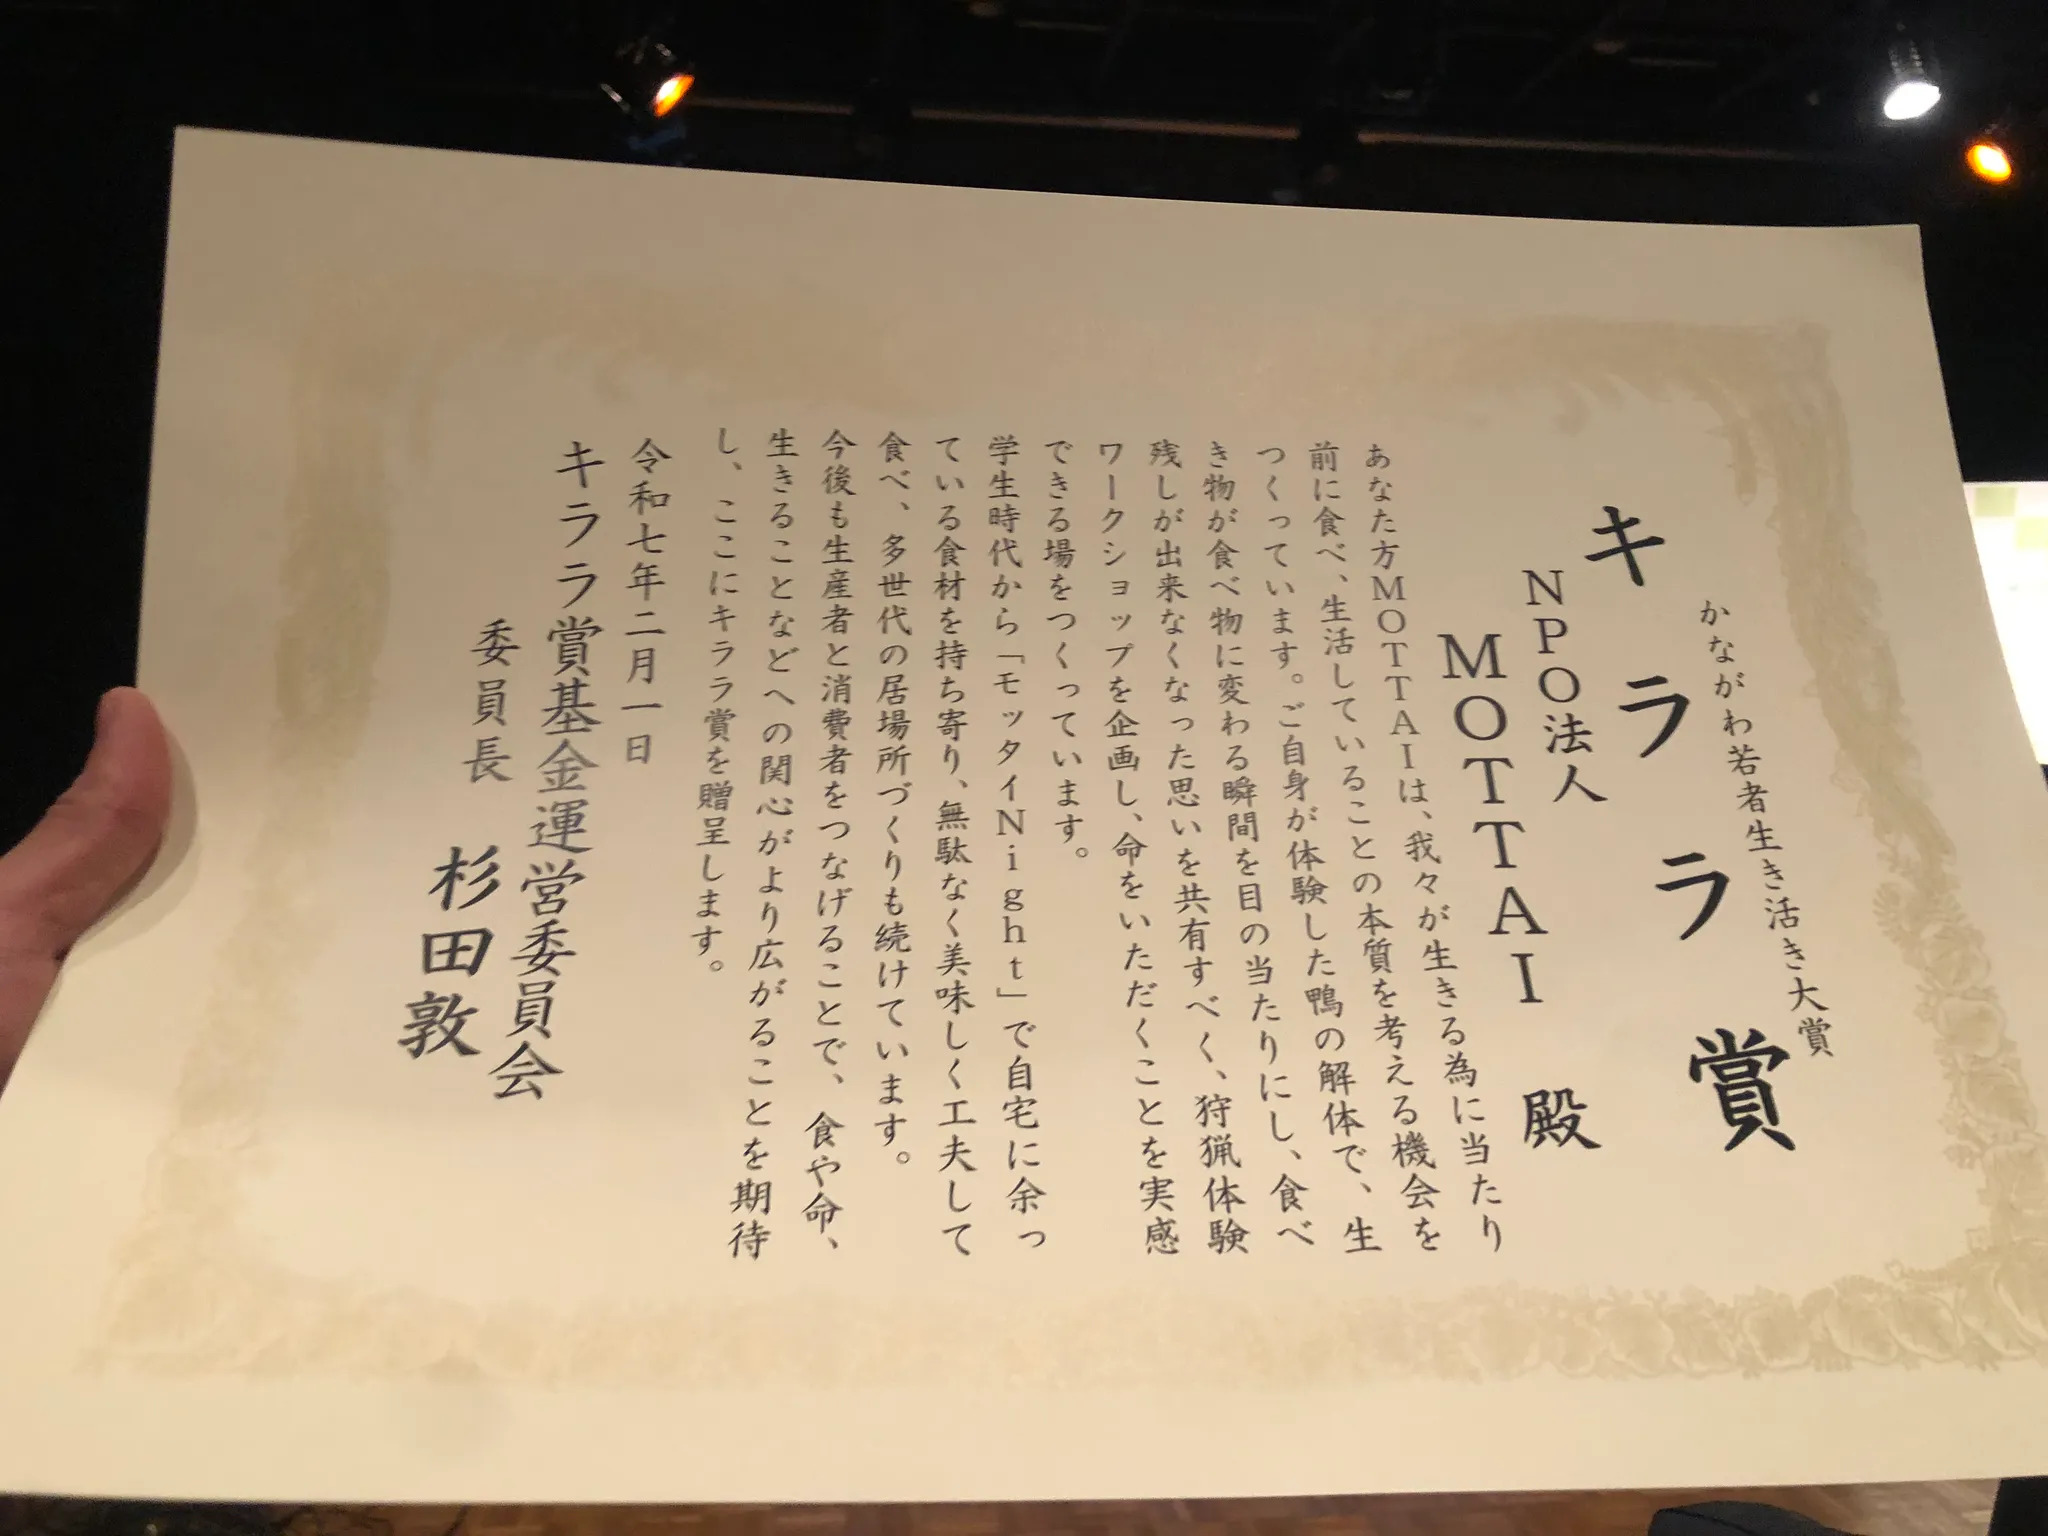 かながわ若者生き活き大賞
キララ賞
NPO法人
MOTTAI 殿
あなた方MOTTAIは、我々が生きる為に当たり
前に食べ、生活していることの本質を考える機会を
つくっています。ご自身が体験した鴨の解体で、生
き物が食べ物に変わる瞬間を目の当たりにし、食べ
残しが出来なくなった思いを共有すべく、狩猟体験
ワークショップを企画し、命をいただくことを実感
できる場をつくっています。
学生時代から「モッタイNight」で自宅に余っ
ている食材を持ち寄り、無駄なく美味しく工夫して
食べ、多世代の居場所づくりも続けています。
今後も生産者と消費者をつなげることで、食や命、
生きることなどへの関心がより広がることを期待
し、ここにキララ賞を贈呈します。
令和七年二月一日
キララ賞基金運営委員会
委員長 杉田敦